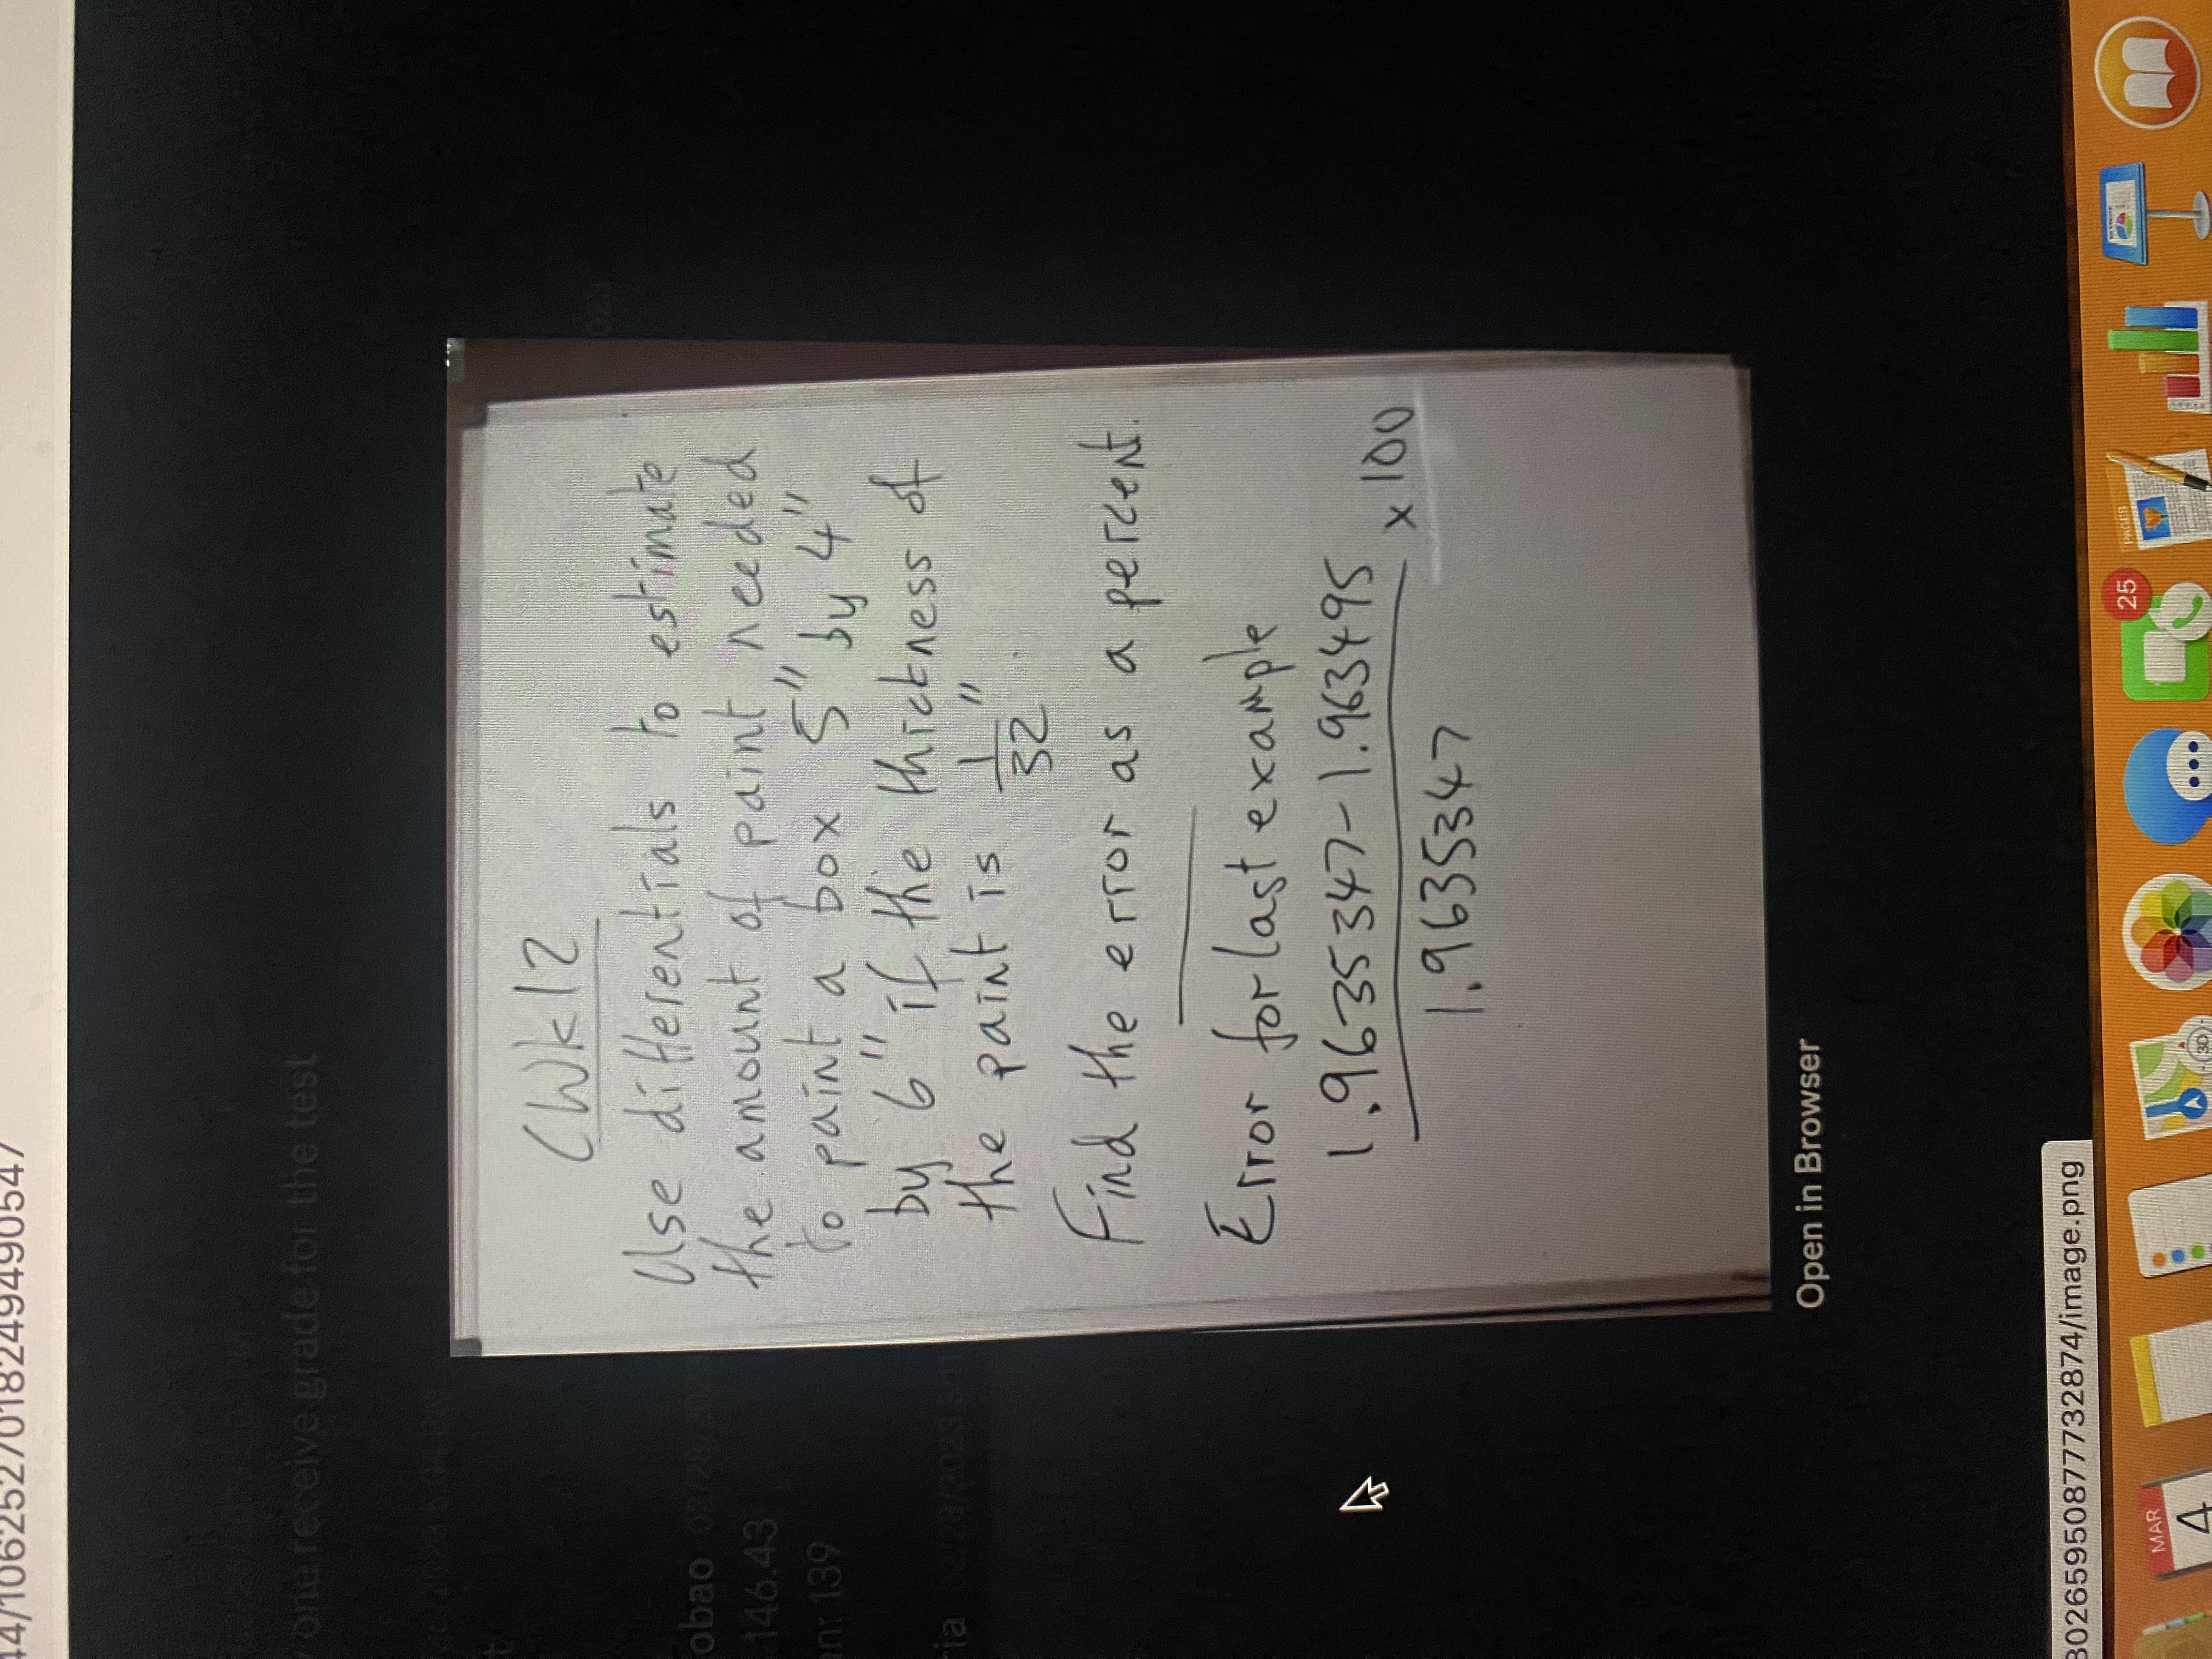 44/1062527/0182494949054/
one receive grade for the test
obao
146.43
139
ria
CWk12
Use differentials to estimate
the amount of paint needed
to paint a box 5" by 4"
by 6" if the thickness of
the paint is 1/32".
Find the error as a percent.
Error for last example
1.9635347-1.963495 x 100
1.9635347
Open in Browser
30265950877732874/image.png
MAR
4
3D
25
PAGES